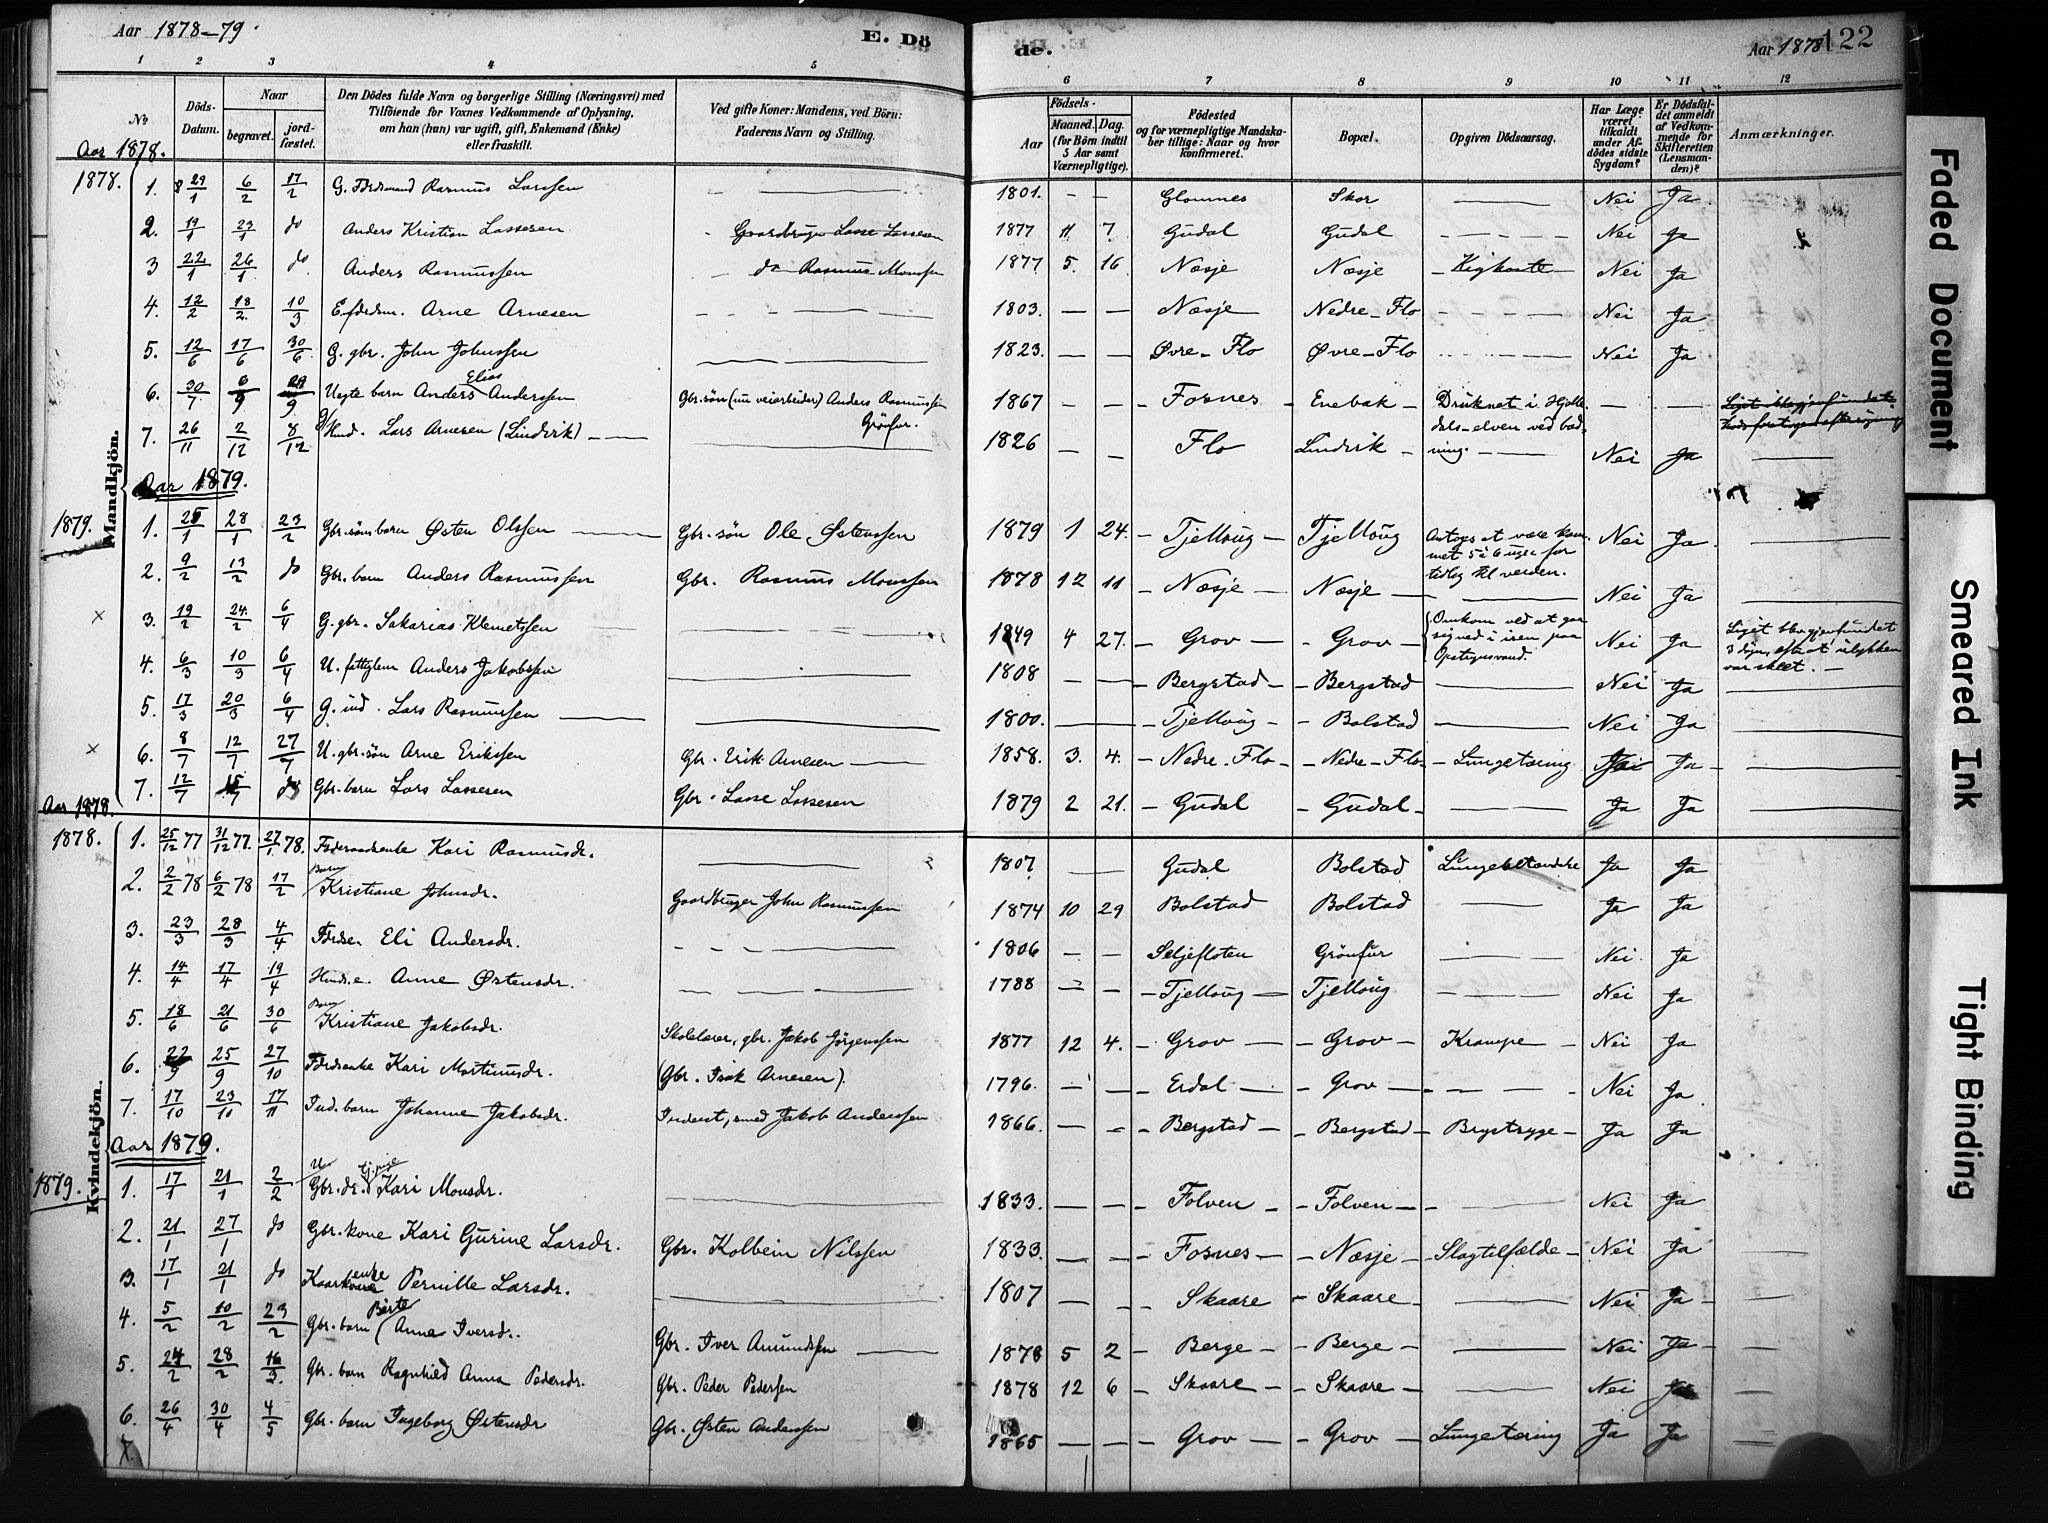 Aar 1878–79. E. Dö de. Aar 1878 122
1 2 3 4 5 6 7 8 9 10 11 12
No. Döds-Datum. Naar begravet. jord-fæstet. Den Dödes fulde Navn og borgerlige Stilling (Næringsvei) med Tilföiende for Voxnes Vedkommende af Oplysning, om han (hun) var ugift, gift, Enkemand (Enke) eller fraskilt. Ved gifte Koner: Mandens, ved Börn: Faderens Navn og Stilling. Födsels- Aar Maaned. Dag. (for Börn indtil 5 Aar samt Værnepligtige). Födested og for værnepligtige Mandskaber tillige: Naar og hvor konfirmeret. Bopæl. Opgiven Dödsaarsag. Har Læge været tilkaldt under Afdödes sidste Sygdom? Er Dödsfaldet anmeldt af Vedkommende for Skifteretten (Lensmanden)? Anmærkninger.
Mandkjön.
Aar 1878.
1878. 1. 29/1 6/2 17/2 G. Fdrdmand Rasmus Larssen — 1801. – – Glomnes Skor — Nei Ja
2. 19/1 23/1 do Anders Kristian Lassesen Gaardbruger Lasse Lassesen 1877 11 7 Gudal Gudal — Nei Ja
3 22/1 26/1 do Anders Rasmussen do Rasmus Monssen 1877 5. 16 Næsje Næsje Kighoste Nei Ja
4. 12/2 18/2 10/3 E. fdrdm. Arne Arnesen — 1803. – – Næsje Nedre-Flo — Nei Ja
5. 12/6 17/6 30/6 G. gbr. John Johnssen — 1823. – – Øvre-Flo Øvre-Flo — Nei Ja
6. 30/7 6/9 29/9 Uegte barn Anders Elias Anderssen Gbr. søn (nu veiarbeider) Anders Rasmussen Grönfur. 1867 – – Fosnes Enebak Druknet i Hjelledels-elven ved badning. – – Liget ikke gjenfundet trods foretagen eftersøgning
7. 26/11 2/12 8/12 G. Hmd. Lars Arnesen (Lindvik) — 1826 – – Flo Lindvik — Nei Ja —
Aar 1879.
1879. 1. 25/1 28/1 23/2 Gbr. søns barn Østen Olssen Gbr. søn Ole Østenssen 1879 1 24. Tjelloug Tjelloug Antages at være kommet 5 à 6 uger for tidlig til verden. Nei Ja —
2. 9/2 13/2 do Gbr. barn Anders Rasmussen Gbr. Rasmus Monssen 1878 12 11 Næsje Næsje — Nei Ja —
× 3. 19/2 24/2 6/4 G. gbr. Sakarias Klemetssen — 1849 4 27. Grov Grov Omkom ved at gaa sig ned i isen paa Opstrynsvand. Nei Ja Liget blev gjenfundet 3 dage efterat ulykken var skeet.
4. 6/3 10/3 6/4 U. fattiglem Anders Jakobssen — 1808 – – Bergstad Bergstad — Nei Ja —
5. 17/3 20/3 6/4 G. ind. Lars Rasmussen — 1800. – – Tjelloug Bolstad — Nei Ja —
× 6. 8/7 12/7 27/7 U. gbr. søn Arne Erikssen Gbr. Erik Arnesen 1858. 3. 4. Nedre-Flo Nedre-Flo Lungetæring Ja Ja —
7. 12/7 15/7 do Gbr. barn Lars Lassesen Gbr. Lasse Lassesen 1879 2 21. Gudal Gudal — Ja Ja —
Kvindekjön.
Aar 1878.
1878. 1. 25/12 77 31/12 77. 27/1 78. Føderaadsenke Kari Rasmusdr. — 1807 – – Gudal Bolstad Lungebetændelse Ja Ja
2. 2/2 78 6/2 78 17/2 Barn Kristiane Johnsdr. Gaardbruger John Rasmussen 1874 10 29 Bolstad Bolstad — Ja Ja
3. 23/3 28/3 4/4 Fdrdse. Eli Andersdr. — 1806 – – Seljefloten Grönfur — Nei Ja
4. 14/4 17/4 19/4 Hmds. e. Anne Østensdr. — 1788 – – Tjelloug Tjelloug — Nei Ja
5. 18/6 21/6 30/6 Barn Kristiane Jakobsdr. Skolelærer, gbr. Jakob Jörgenssen 1877 12 4. Grov Grov Krampe Nei Ja
6. 22/9 25/9 27/10 Fdrdsenke Kari Mortinusdr. (Gbr. Isak Arnesen). 1796. – – Erdal Grov — Nei Ja
7. 17/10 23/10 17/11 Ind. barn Johanne Jakobsdr. Inderst, smed Jakob Anderssen 1866. – – Bergstad Bergstad Brystsyge Ja Ja
Aar 1879.
1879. 1. 17/1 21/1 2/2 U. Gbr. dr. tj. pige Kari Monsdr. — 1833. – – Folven Folven — Nei Ja —
2. 21/1 27/1 do Gbr. kone Kari Gurine Larsdr. Gbr. Kolbein Nilssen 1833. – – Fosnes Næsje Slagtilfælde Nei Ja —
3. 17/1 21/1 do enke Pernille Larsdr. — 1807 – – Skaare Skaare — Nei Ja —
4. 5/2 10/2 23/2 Gbr. barn Birte (Anna) Iversdr. Gbr. Iver Amundssen 1878 5 2 Berge Berge — Nei Ja —
5. 24/2 28/2 16/3. Gbr. barn Ragnhild Anna Pedersdr. Gbr. Peder Pedersen 1878 12 6 Skaare Skaare — Nei Ja —
6. 26/4 30/4 4/5 Gbr. barn Ingeborg Østensdr Gbr. Østen Anderssen 1865 – – Grov Grov Lungetæring Ja Ja —
Faded Document
Smeared Ink
Tight Binding